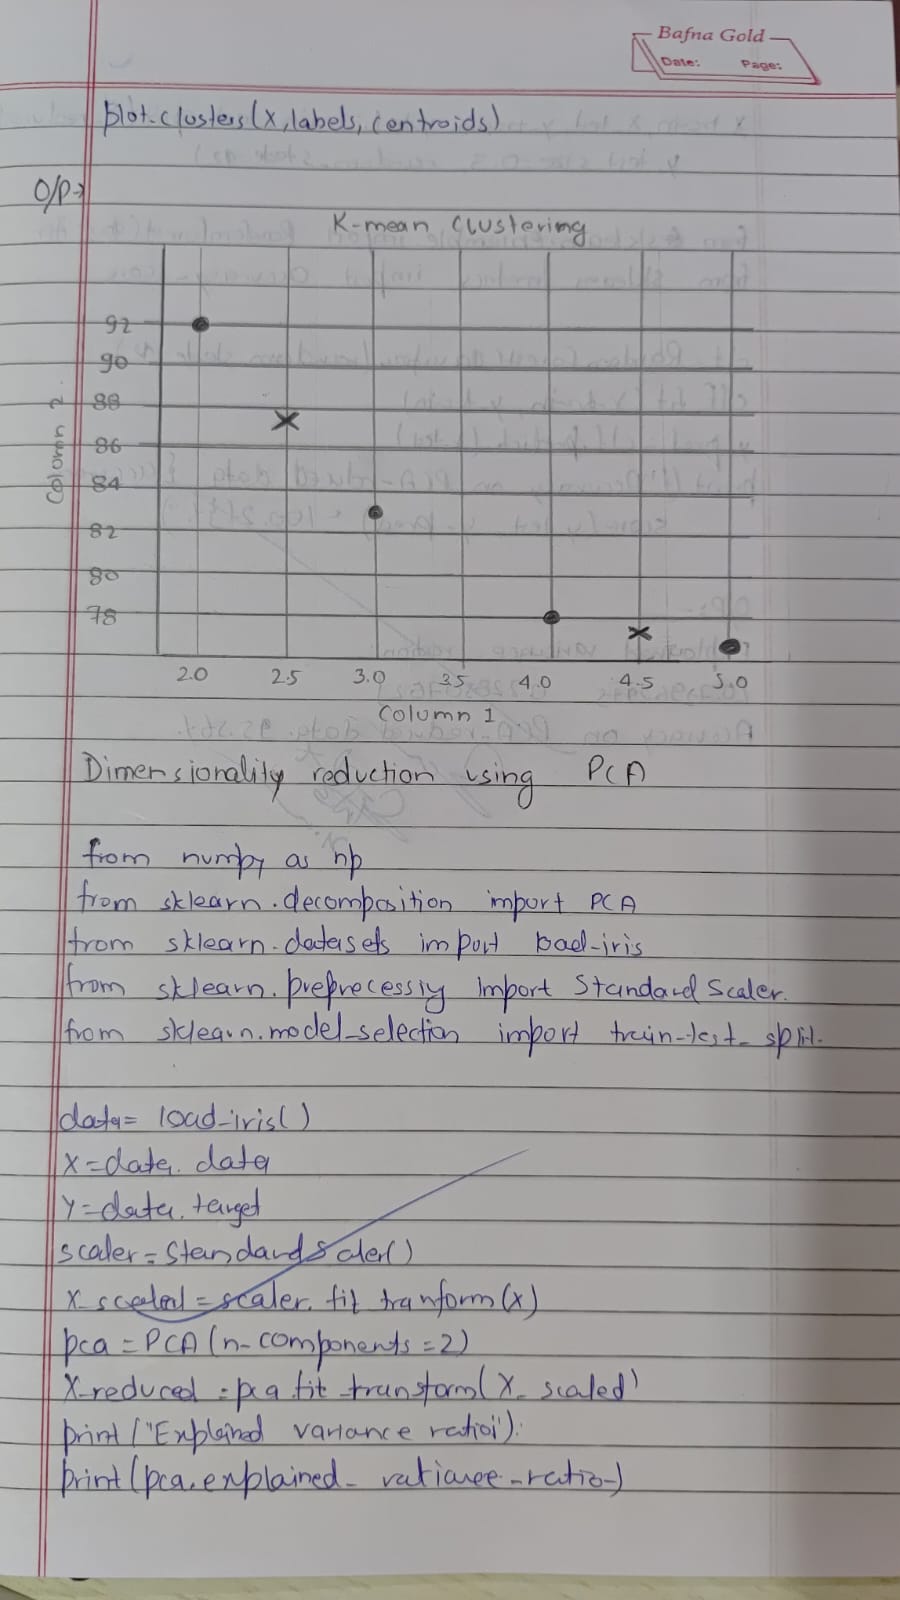 Bafna Gold
Date: Page:
plot-clusters(X, labels, centroids)
O/P→
K-mean Clustering
92
90
88
86
84
82
80
78
Column 2
2.0 2.5 3.0 3.5 4.0 4.5 5.0
Column 1
Dimensionality reduction using PCA
from numpy as np
from sklearn.decomposition import PCA
from sklearn.datasets import load-iris
from sklearn.preprecessiy import Standard Scaler.
from sklearn.model_selection import train-test_split.
data= load-iris()
X=data.data
Y=data.target
scaler=StandardScaler()
X_scaled=scaler.fit tranform(x)
pca=PCA(n-components=2)
X-reduced=pca.fit-transform(X_scaled)
print("Explained variance ratio").
print(pca.explained_ -ratio-)